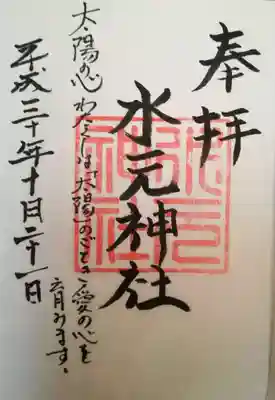 奉拝
水元神社
太陽の心 わたくしは、太陽のごとき愛の心を
六月みます。
平成三十年十月二十一日